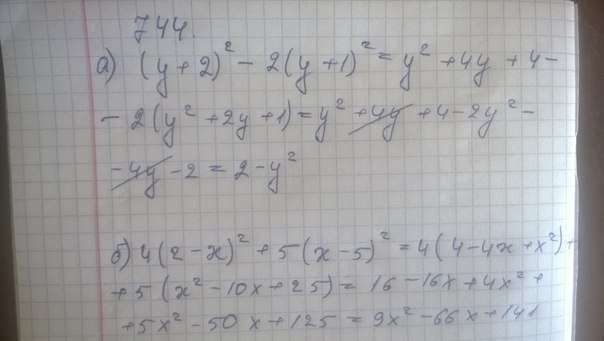 744.
а) (y+2)² - 2(y+1)² = y² + 4y + 4 -
- 2(y² + 2y + 1) = y² + 4y + 4 - 2y² -
- 4y - 2 = 2 - y²
б) 4(2-x)² + 5(x-5)² = 4(4 - 4x + x²) +
+ 5(x² - 10x + 25) = 16 - 16x + 4x² +
+ 5x² - 50x + 125 = 9x² - 66x + 141